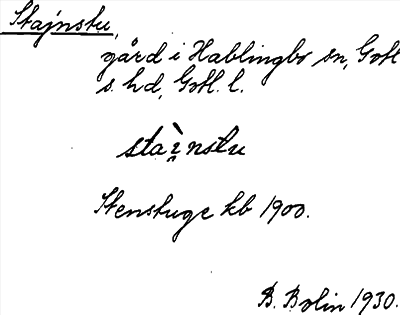 Stajnstu,
gård i Hablingbo sn, Gotl
s. hd, Gotl. l.
staì̯nstu
Stenstuge kb 1900.
B. Bolin 1930.